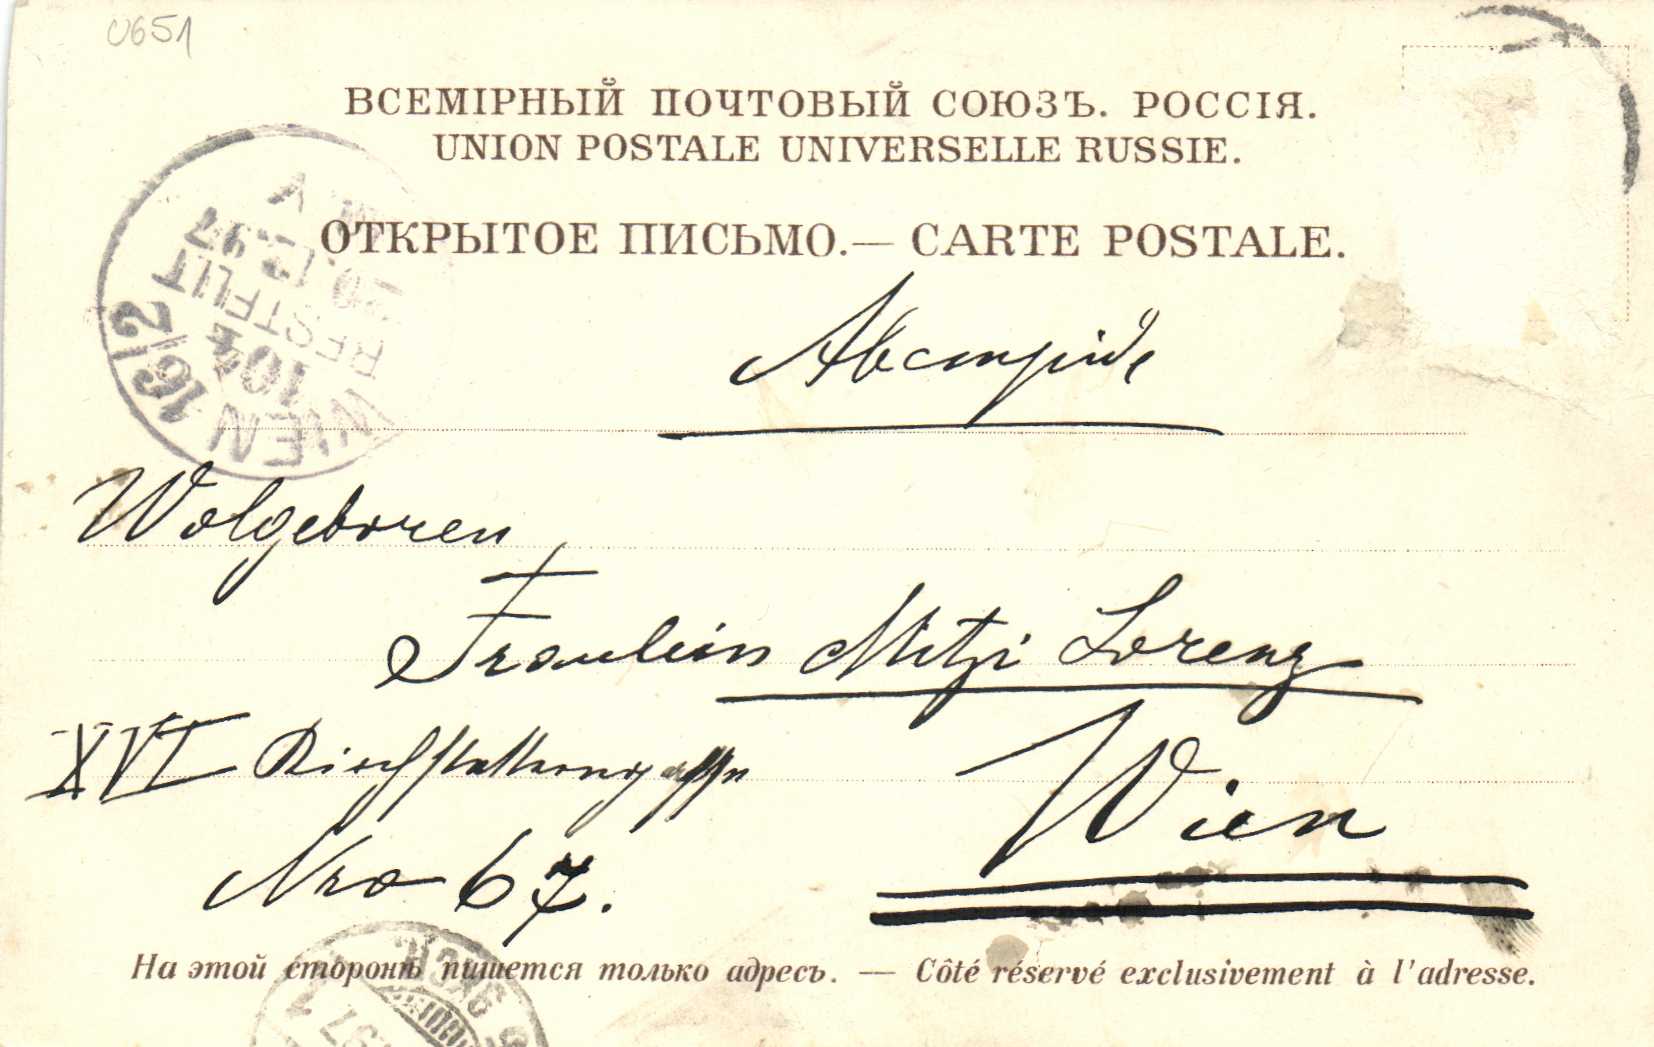 0651
ВСЕМІРНЫЙ ПОЧТОВЫЙ СОЮЗЪ. РОССІЯ.
UNION POSTALE UNIVERSELLE RUSSIE.
ОТКРЫТОЕ ПИСЬМО.— CARTE POSTALE.
WIEN 16/2
10¼
BESTELLT
20.12.97
V
Wolgeboren
Fraulein Mitzi Lorenz
XVI
Wien
Nro 67.
На этой сторонѣ пишется только адресъ. — Côté réservé exclusivement à l'adresse.